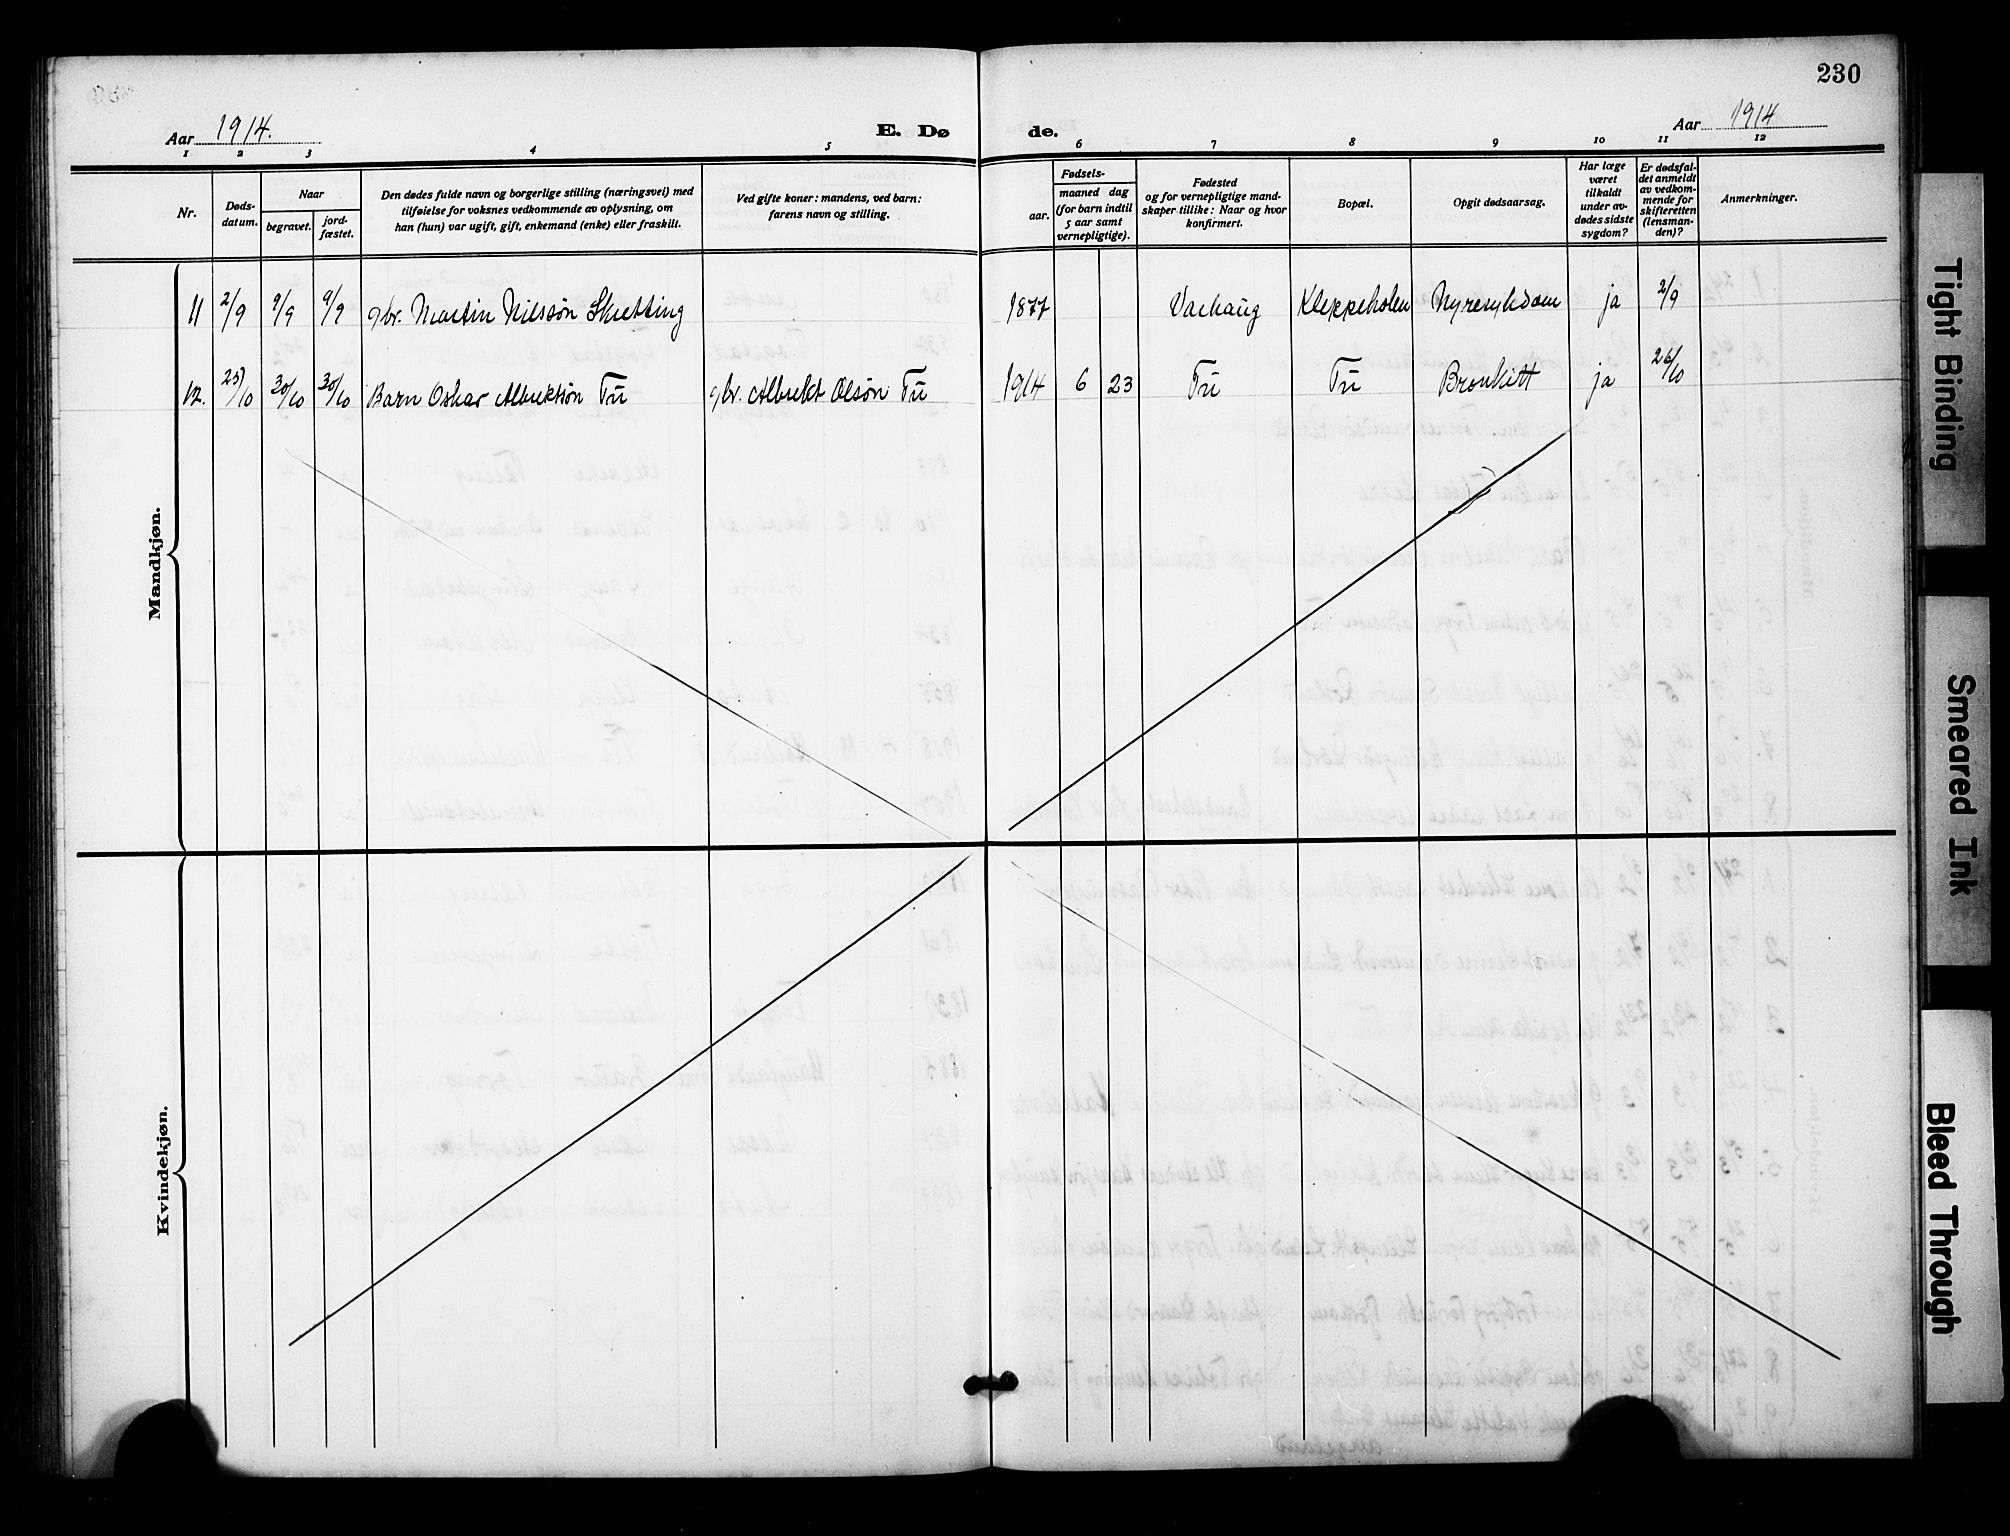 230
Aar 1914. E. Dø de. Aar 1914
1 2 3 4 5 6 7 8 9 10 11 12
Nr.
Døds-
datum.
Naar
begravet.
jord-
fæstet.
Den dødes fulde navn og borgerlige stilling (næringsvei) med
tilføielse for voksnes vedkommende av oplysning, om
han (hun) var ugift, gift, enkemand (enke) eller fraskilt.
Ved gifte koner: mandens, ved barn:
farens navn og stilling.
Fødsels-
aar.
maaned dag
(for barn indtil
5 aar samt
vernepligtige).
Fødested
og for vernepligtige mand-
skaper tillike: Naar og hvor
konfirmert.
Bopæl.
Opgit dødsaarsag.
Har læge
været
tilkaldt
under av-
dødes sidste
sygdom?
Er dødsfal-
det anmeldt
av vedkom-
mende for
skifteretten
(lensman-
den)?
Anmerkninger.
Mandkjøn.
11 2/9 9/9 9/9 gbr. Martin Nilssøn Skretting 1877 Varhaug Kleppeholen Nyresykdom ja 2/9
12. 25/10 30/10 30/10 Barn Oskar Albrektsøn Tu gbr. Albrekt Olsøn Tu 1914 6 23 Tu Tu Bronkitt ja 26/10
Kvindekjøn.
Tight Binding
Smeared Ink
Bleed Through